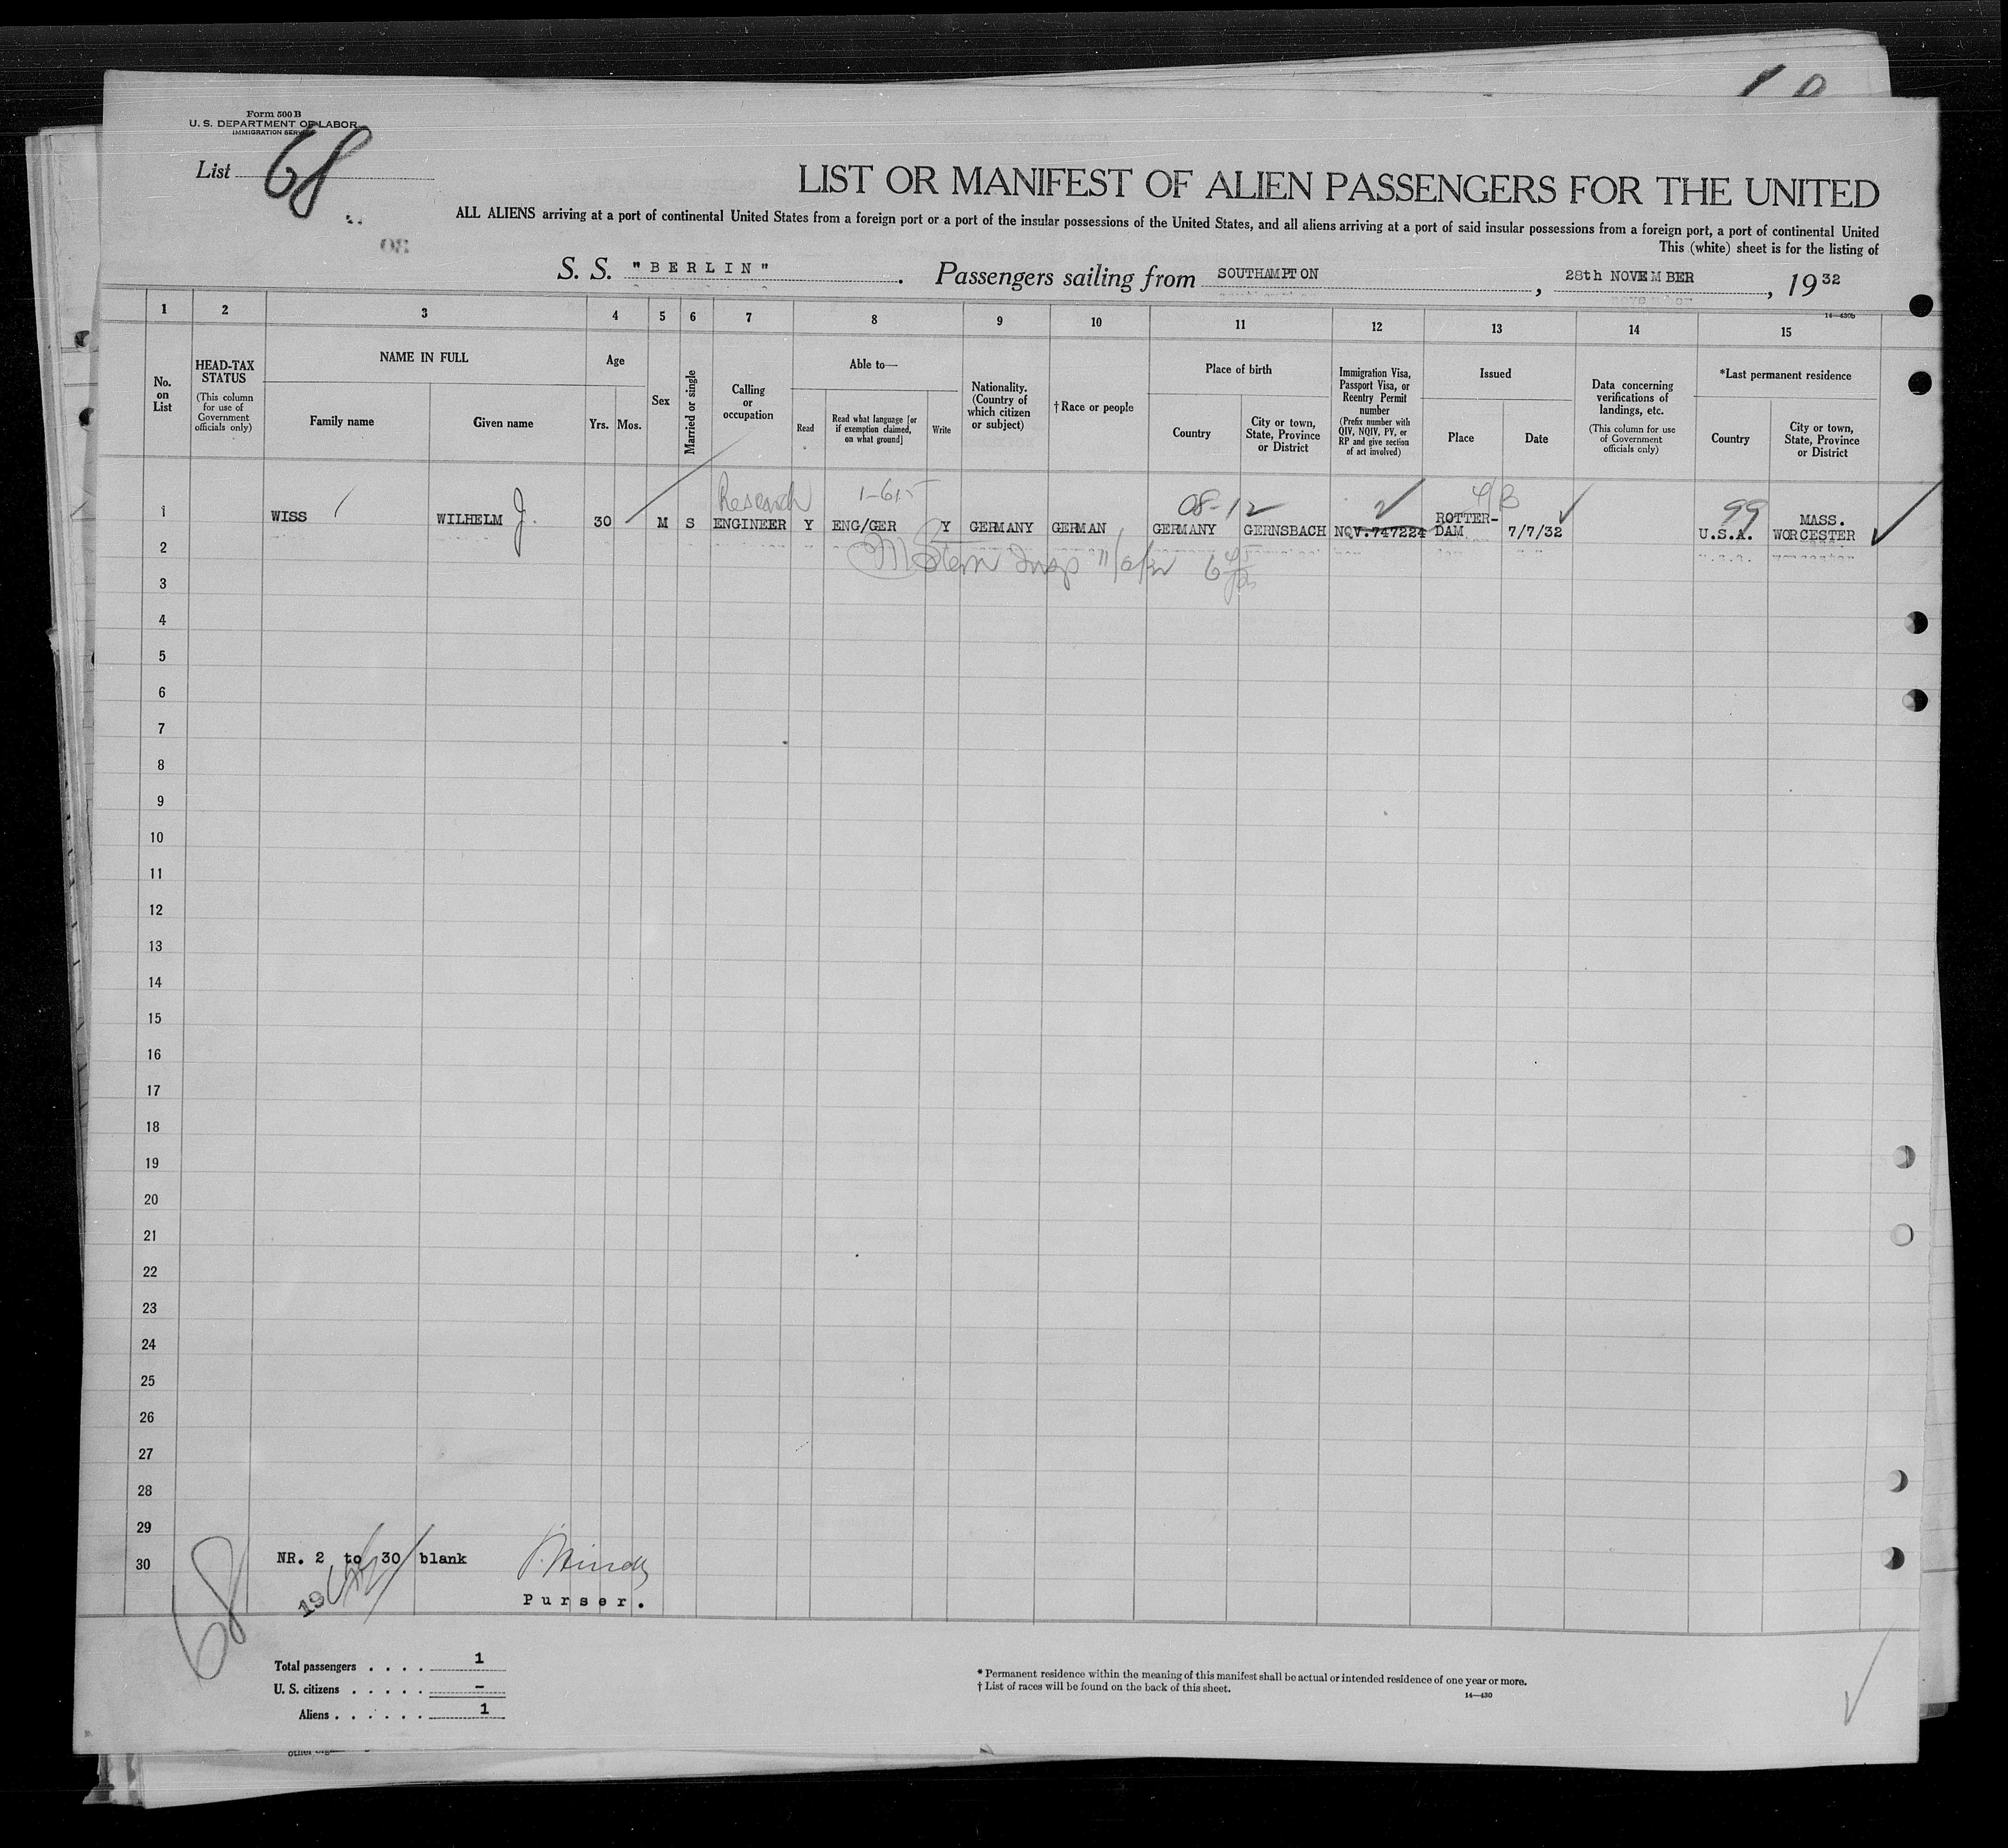 Form 500 B
U. S. DEPARTMENT OF LABOR
IMMIGRATION SERVICE
List 68
LIST OR MANIFEST OF ALIEN PASSENGERS FOR THE UNITED
ALL ALIENS arriving at a port of continental United States from a foreign port or a port of the insular possessions of the United States, and all aliens arriving at a port of said insular possessions from a foreign port, a port of continental United
This (white) sheet is for the listing of
S. S. "BERLIN". Passengers sailing from SOUTHAMPTON, 28th NOVEMBER, 1932
14—430b
1 2 3 4 5 6 7 8 9 10 11 12 13 14 15
No. on List
HEAD-TAX STATUS (This column for use of Government officials only)
NAME IN FULL
Family name
Given name
Age
Yrs.
Mos.
Sex
Married or single
Calling or occupation
Able to—
Read
Read what language [or if exemption claimed, on what ground]
Write
Nationality. (Country of which citizen or subject)
†Race or people
Place of birth
Country
City or town, State, Province or District
Immigration Visa, Passport Visa, or Reentry Permit number (Prefix number with QIV, NQIV, PV, or RP and give section of act involved)
Issued
Place
Date
Data concerning verifications of landings, etc. (This column for use of Government officials only)
*Last permanent residence
Country
City or town, State, Province or District
Research 08-12 99
1 WISS WILHELM J. 30 M S ENGINEER Y ENG/GER Y GERMANY GERMAN GERMANY GERNSBACH NQV.747224 ROTTER-DAM 7/7/32 U.S.A. MASS. WORCESTER
2
3
4
5
6
7
8
9
10
11
12
13
14
15
16
17
18
19
20
21
22
23
24
25
26
27
28
29
30
NR. 2 to 30 blank
Purser.
68
Total passengers . . . . 1
U. S. citizens . . . . . –
Aliens . . . . . . 1
* Permanent residence within the meaning of this manifest shall be actual or intended residence of one year or more.
† List of races will be found on the back of this sheet.
14—430